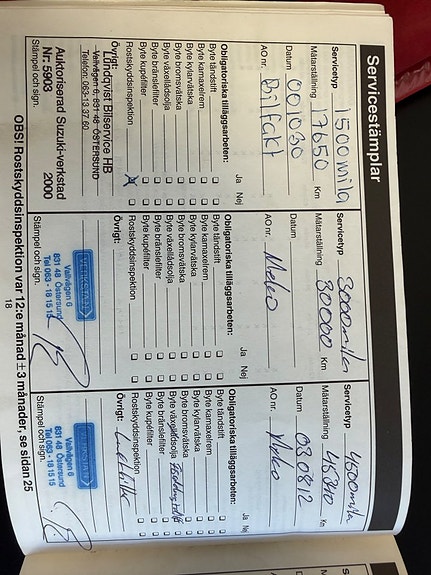 Servicestämplar
Servicetyp 1500 mila
Mätarställning 17650 Km
Datum 001030
AO nr. Bilfakt
Obligatoriska tilläggsarbeten: Ja Nej
Byte tändstift
Byte kamaxelrem
Byte kylarvätska
Byte bromsvätska
Byte växellådsolja
Byte bränslefilter
Byte kupéfilter
Rostskyddsinspektion X
Övrigt:
Lundqvist Bilservice HB
Valvägen 6, 831 48 ÖSTERSUND
Telefon: 063-13 37 60
Auktoriserad Suzuki-verkstad
Nr: 5903 2000
Stämpel och sign.
Servicetyp 3000 mila
Mätarställning 30000 Km
Datum
AO nr. Meko
Obligatoriska tilläggsarbeten: Ja Nej
Byte tändstift
Byte kamaxelrem
Byte kylarvätska
Byte bromsvätska
Byte växellådsolja
Byte bränslefilter
Byte kupéfilter
Rostskyddsinspektion
Övrigt:
Valvägen 6
831 48 Östersund
Tel 063 - 18 15 15
Stämpel och sign.
Servicetyp 4500 mila
Mätarställning 45340 Km
Datum 030812
AO nr. Meko
Obligatoriska tilläggsarbeten: Ja Nej
Byte tändstift
Byte kamaxelrem
Byte kylarvätska
Byte bromsvätska
Byte växellådsolja
Byte bränslefilter
Byte kupéfilter
Rostskyddsinspektion
Övrigt:
Valvägen 6
831 48 Östersund
Tel 063 - 18 15 15
Stämpel och sign.
OBS! Rostskyddsinspektion var 12:e månad ± 3 månader, se sidan 25
18